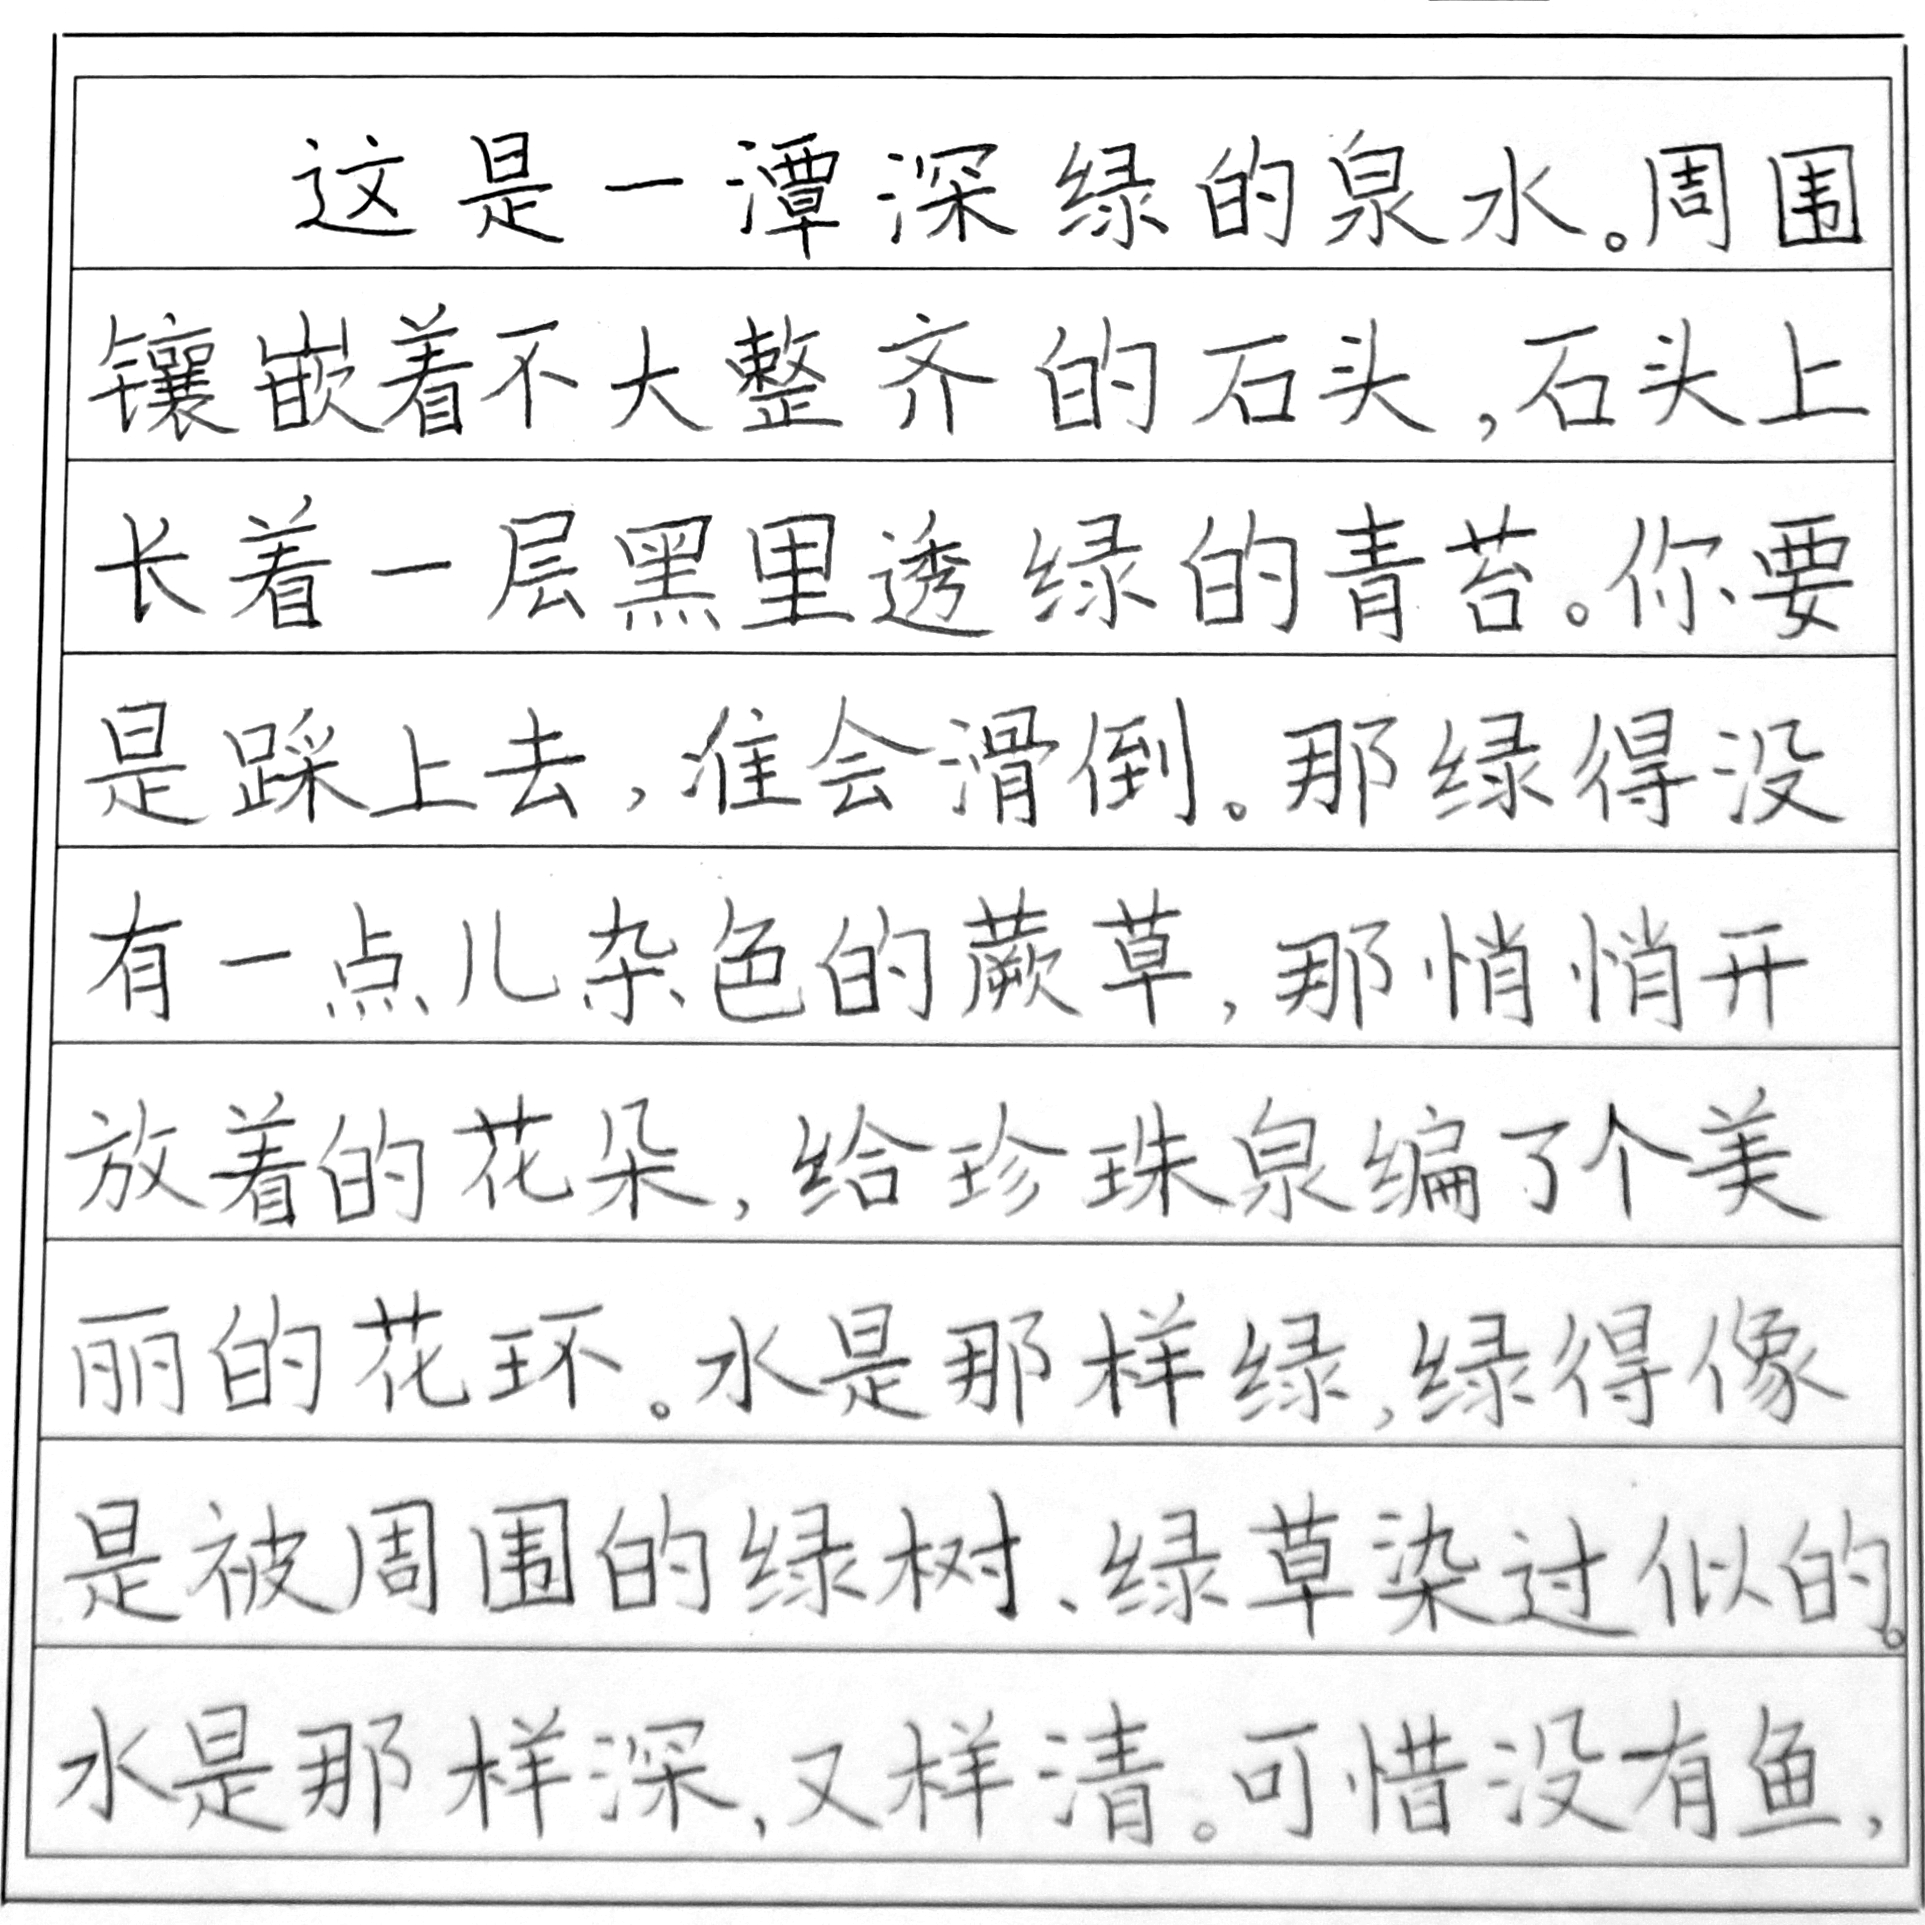 这是一潭深绿的泉水。周围
镶嵌着不大整齐的石头,石头上
长着一层黑里透绿的青苔。你要
是踩上去,准会滑倒。那绿得没
有一点儿杂色的蕨草,那悄悄开
放着的花朵,给珍珠泉编了个美
丽的花环。水是那样绿,绿得像
是被周围的绿树、绿草染过似的。
水是那样深,又样清。可惜没有鱼,